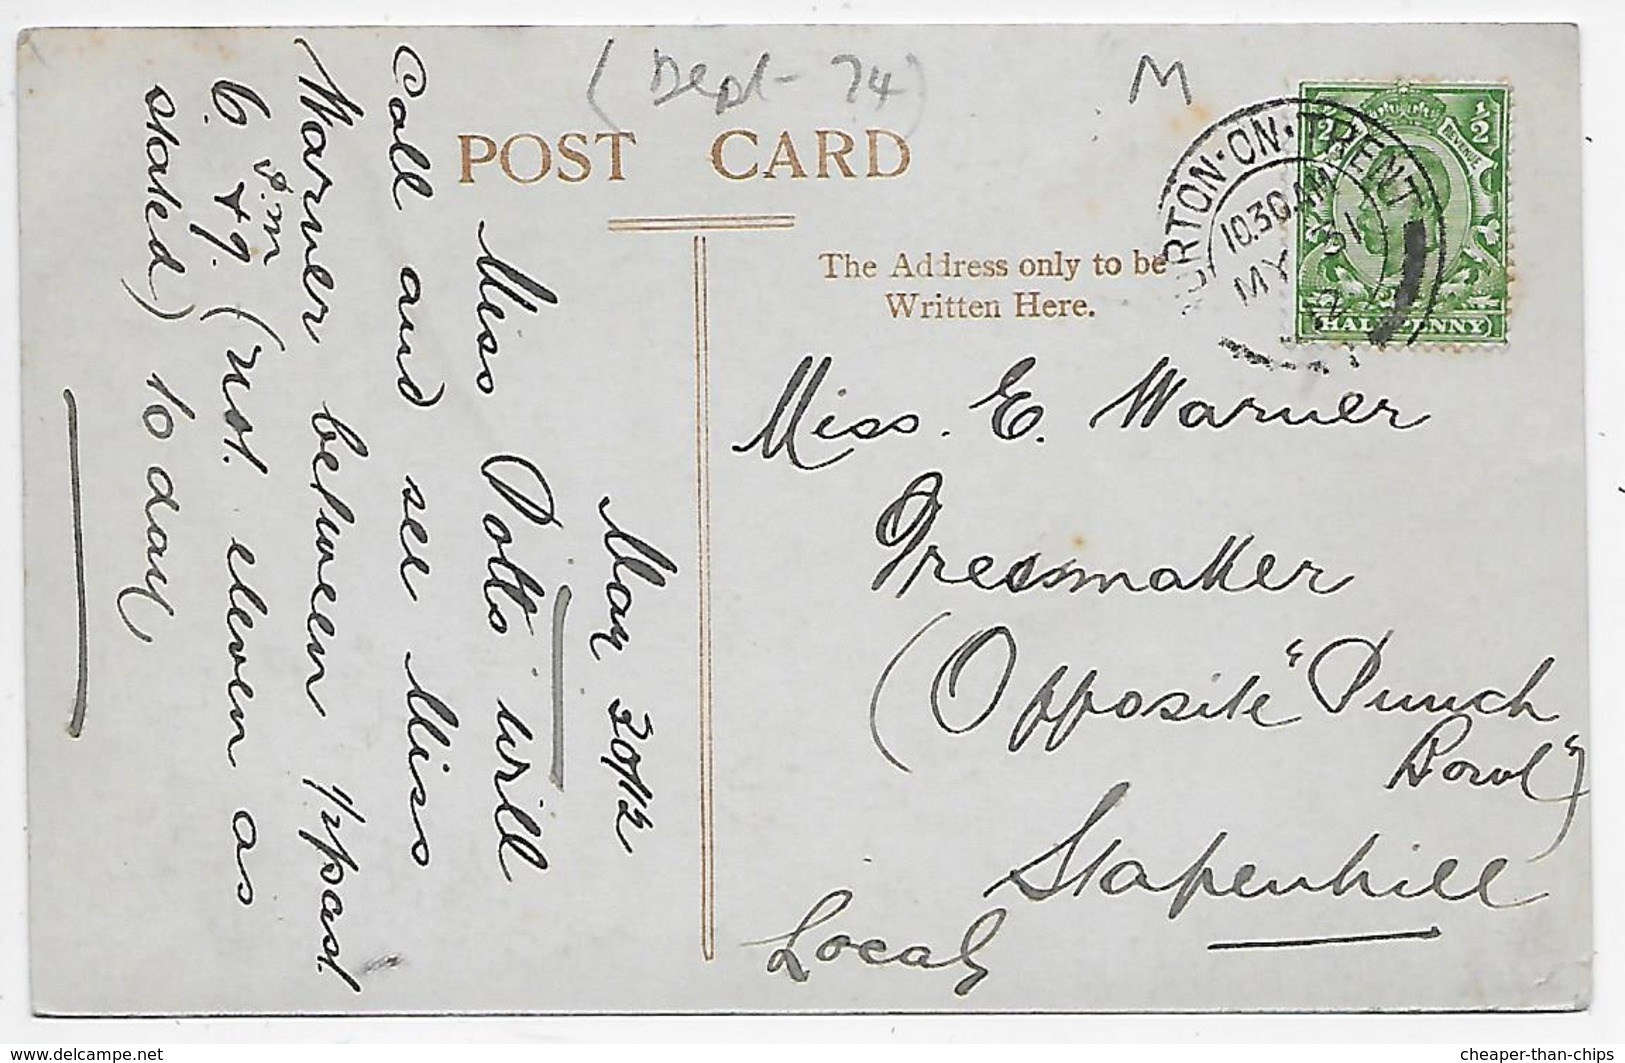 (Dept- 74)
M
POST CARD
The Address only to be
Written Here.
BURTON-ON-TRENT
10.30AM
MY 31
12
1/2 REVENUE 1/2
HALFPENNY
May 30/12
Miss Potts will
call and see Miss
Warner between 1/2 past
6 & 9. p.m
(not eleven as
stated) to day
Miss. E. Warner
Dressmaker
(Opposite "Punch
Bowl")
Stapenhill
Local
www.delcampe.net
cheaper-than-chips